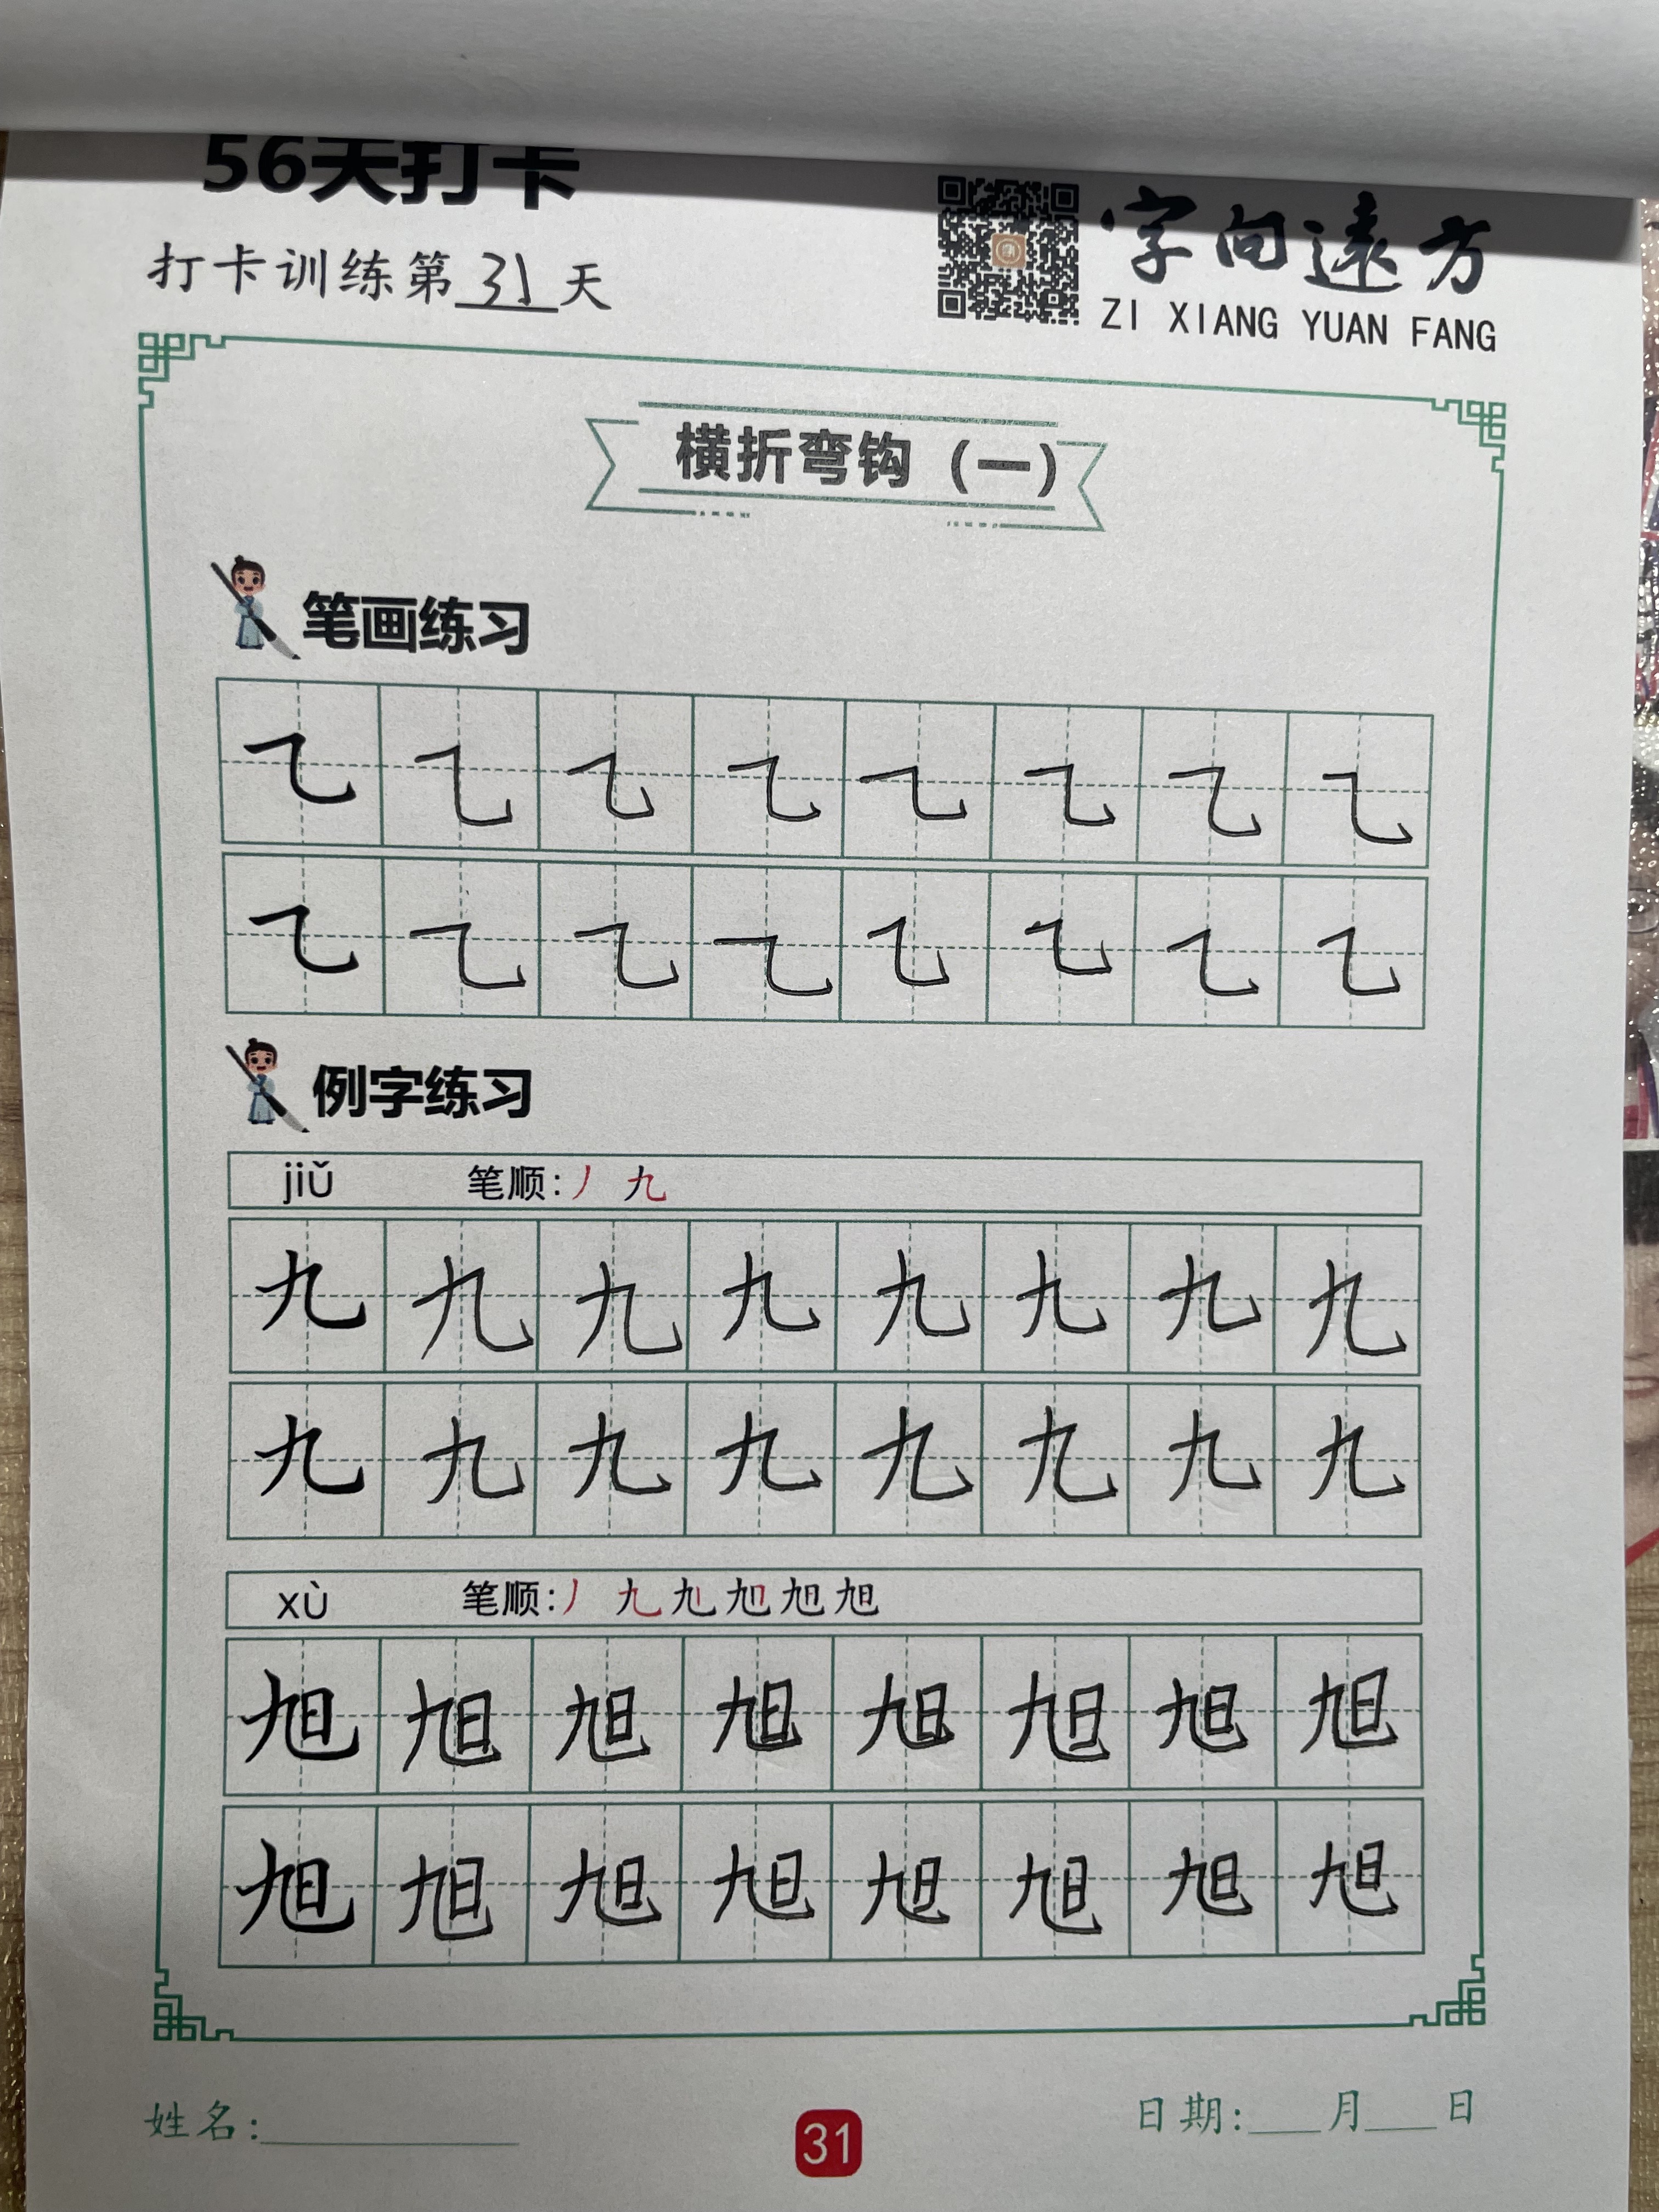 56天打卡
打卡训练第31天
字向遠方
ZI XIANG YUAN FANG
横折弯钩（一）
笔画练习
㇈ ㇈ ㇈ ㇈ ㇈ ㇈ ㇈ ㇈
㇈ ㇈ ㇈ ㇈ ㇈ ㇈ ㇈ ㇈
例字练习
jiǔ 笔顺：丿 九
九 九 九 九 九 九 九 九
九 九 九 九 九 九 九 九
xù 笔顺：丿 九 旭 旭 旭 旭
旭 旭 旭 旭 旭 旭 旭 旭
旭 旭 旭 旭 旭 旭 旭 旭
姓名：
31
日期：___月___日